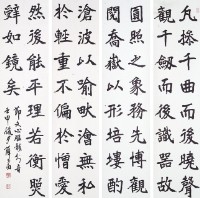 凡操千曲而後曉聲
觀千劍而後識器故
圓照之象務先博觀
閱喬嶽以形培塿酌
滄波以喻畎澮無私
於輕重不偏於憎愛
然後能平理若衡照
辭如鏡矣
節文心雕龍
壬申